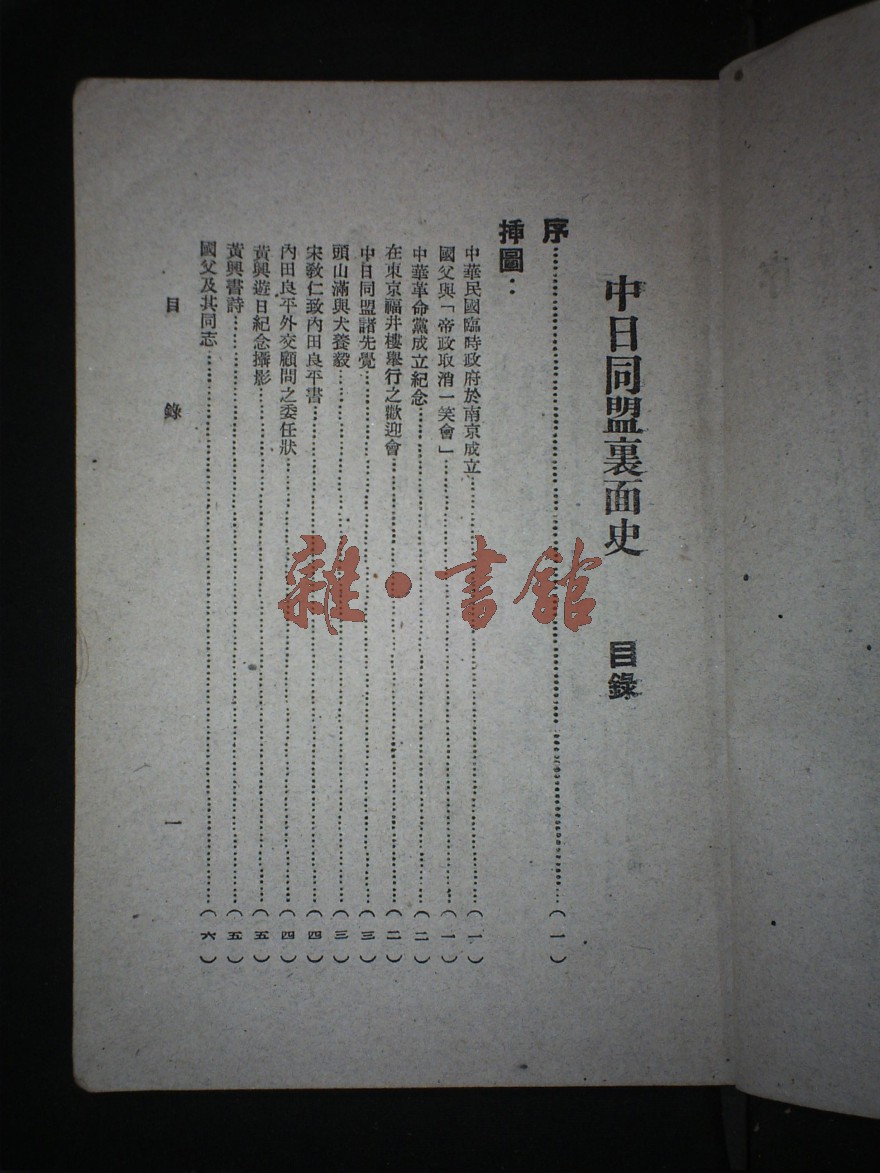 中日同盟裏面史 目錄
序……(一)
插圖：
中華民國臨時政府於南京成立……(一)
國父與「帝政取消一笑會」……(一)
中華革命黨成立紀念……(二)
在東京福井樓舉行之歡迎會……(二)
中日同盟諸先覺……(三)
頭山滿與犬養毅……(三)
宋敎仁致內田良平書……(四)
內田良平外交顧問之委任狀……(四)
黃興遊日紀念攝影……(五)
黃興書詩……(五)
國父及其同志……(六)
目錄 一
雜·書館